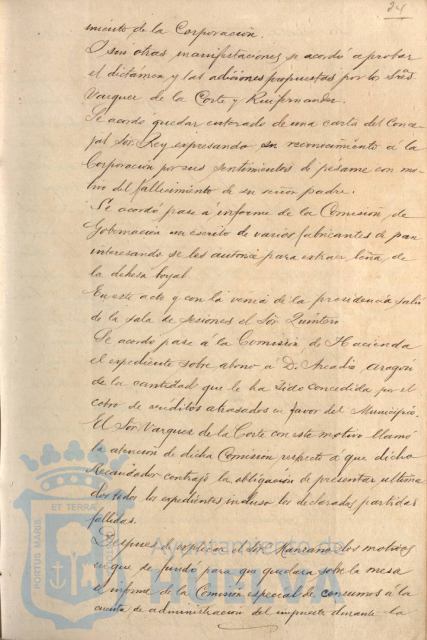 24
miento de la Corporación.
Y sin otras manifestaciones se acordó aprobar
el dictámen y las adiciones propuestas por los Sres
Vazquez de la Corte y Ruifernandez.
Se acordo quedar enterado de una carta del Conce-
jal Sor. Rey expresando su reconocimiento á la
Corporación por sus sentimientos de pésame con mo-
tivo del fallecimiento de su señor padre.
Se acordó pase á informe de la Comisión de
Gobernación un escrito de varios fabricantes de pan
interesando se les autorice para extraer leña de
la dehesa boyal.
En este acto y con la venia de la presidencia salió
de la sala de sesiones el Sor. Quintero
Se acordo pase a la Comisión de Hacienda
el expediente sobre abono á D. Arcadio Aragón
de la cantidad que le ha sido concedida por el
cobro de créditos atrasados en favor del Municipio.
El Sor. Vazquez de la Corte con este motivo llamó
la atención de dicha Comision respecto á que dicho
Recaudador contrajo la obligación de presentar ultima
dos todos los expedientes incluso los declarados partidas
fallidas.
Despues de esplicar el Sor. Manzano los motivos
en que se fundó para que quedara sobre la mesa
el informe de la Comisión especial de consumos á la
cuenta de administración del impuesto durante la
PORTUS MARIS ET TERRÆ
Ayuntamiento de
HUELVA